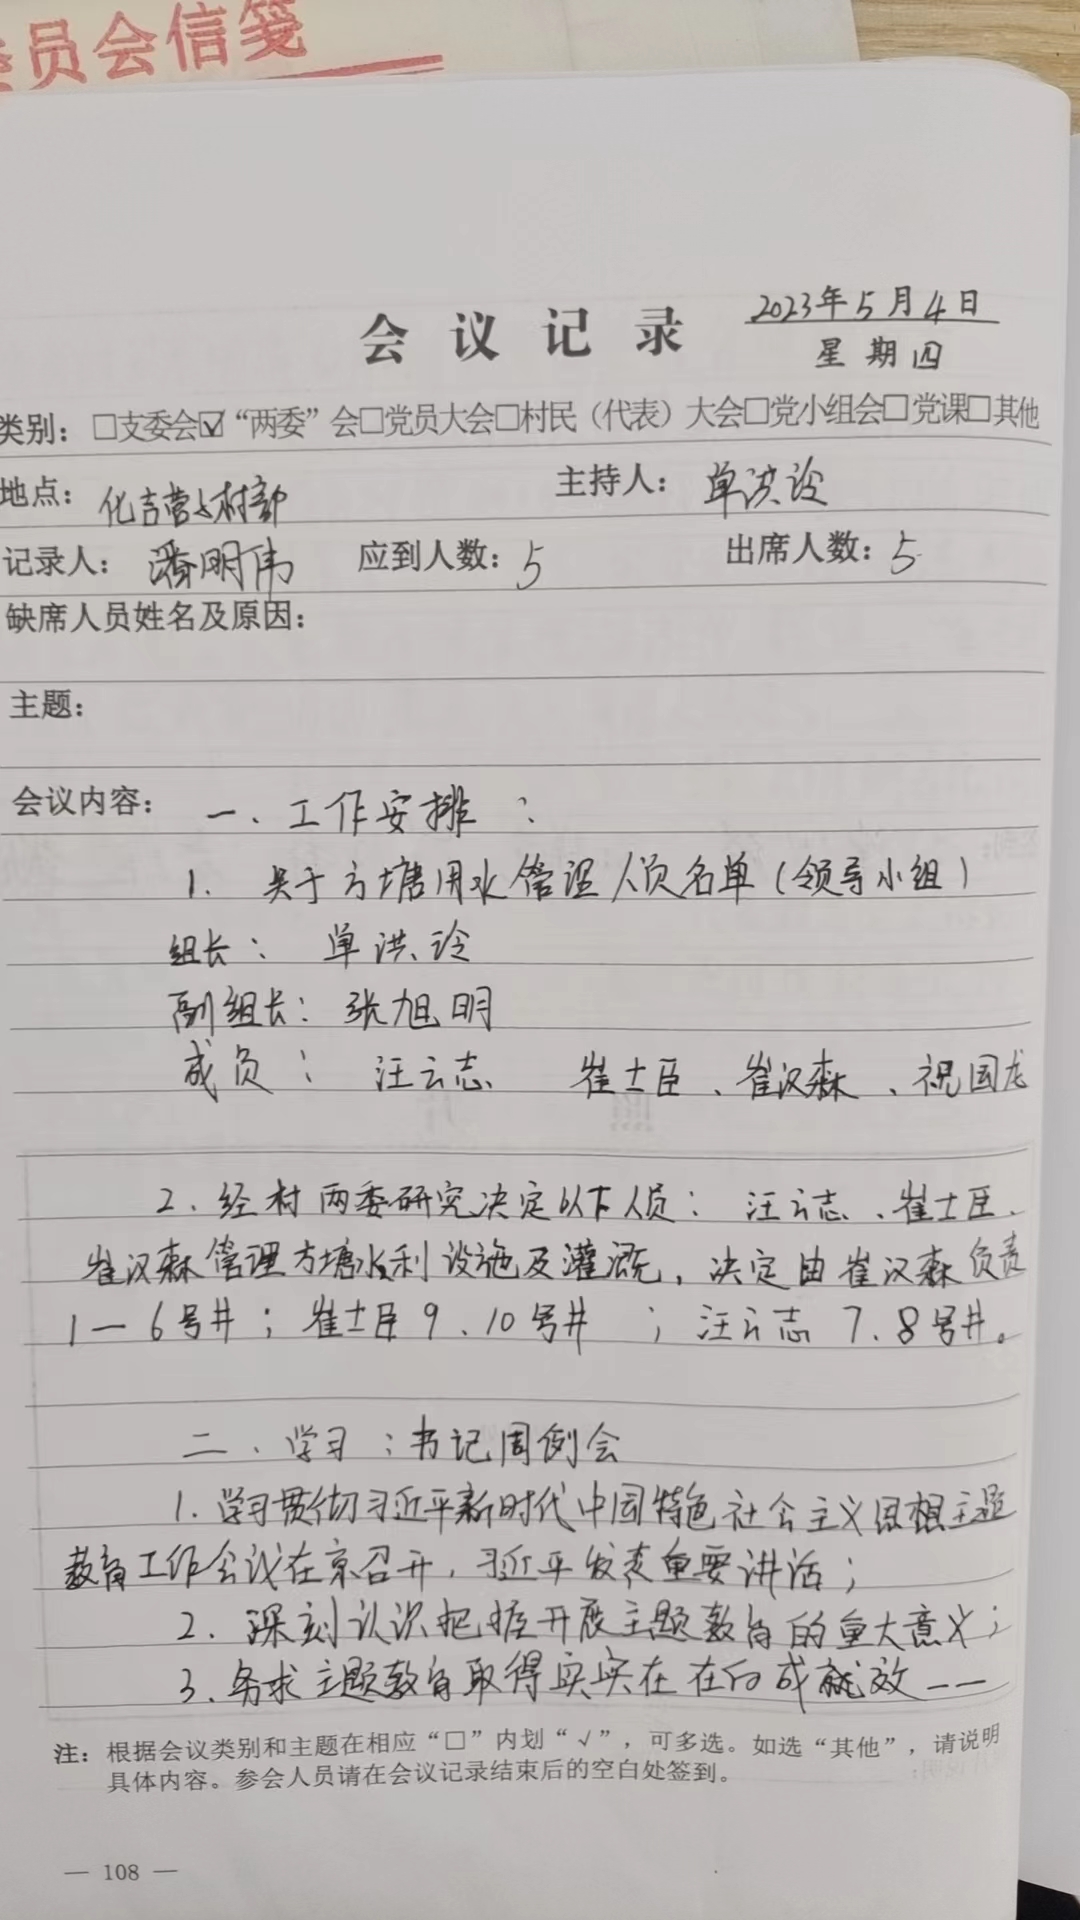 委员会信笺
会议记录
2023年5月4日
星期四
类别：□支委会☑“两委”会□党员大会□村民（代表）大会□党小组会□党课□其他
地点：化吉营子村部 主持人：单洪玲
记录人：潘明伟 应到人数：5 出席人数：5
缺席人员姓名及原因：
主题：
会议内容：一、工作安排：
1. 关于方塘用水管理人员名单（领导小组）
组长：单洪玲
副组长：张旭明
成员：汪云志 崔士臣、崔汉森、祝国龙
2. 经村两委研究决定以下人员：汪云志、崔士臣、
崔汉森管理方塘水利设施及灌溉，决定由崔汉森负责
1—6号井；崔士臣9、10号井；汪云志7、8号井。
二、学习：书记周例会
1. 学习贯彻习近平新时代中国特色社会主义思想主题
教育工作会议在京召开，习近平发表重要讲话；
2. 深刻认识把握开展主题教育的重大意义；
3、务求主题教育取得实实在在的成就效——
注：根据会议类别和主题在相应“□”内划“√”，可多选。如选“其他”，请说明
具体内容。参会人员请在会议记录结束后的空白处签到。
— 108 —